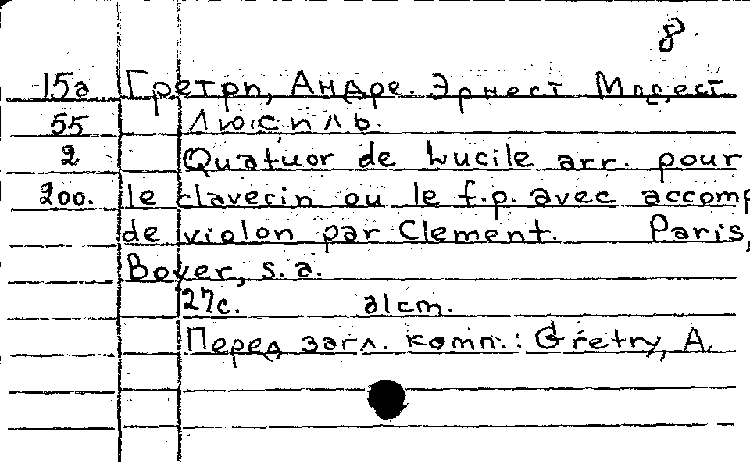 8
15а Гретри, Андре. Эрнест Модест
55 Люсиль.
2 Quatuor de Lucile arr. pour
200. le clavecin ou le f.p. avec accomp
de violon par Clement. Paris,
Boyer, s.a.
27с. alcm.
Перед загл. комп.: Gretry, A.